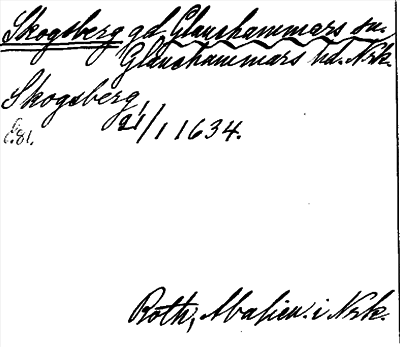 Skogsberg gd. Glanshammars sn.
Glanshammars hd. Nrk.
Skogsberg,
21/1 1634.
Roth, i Nrk.